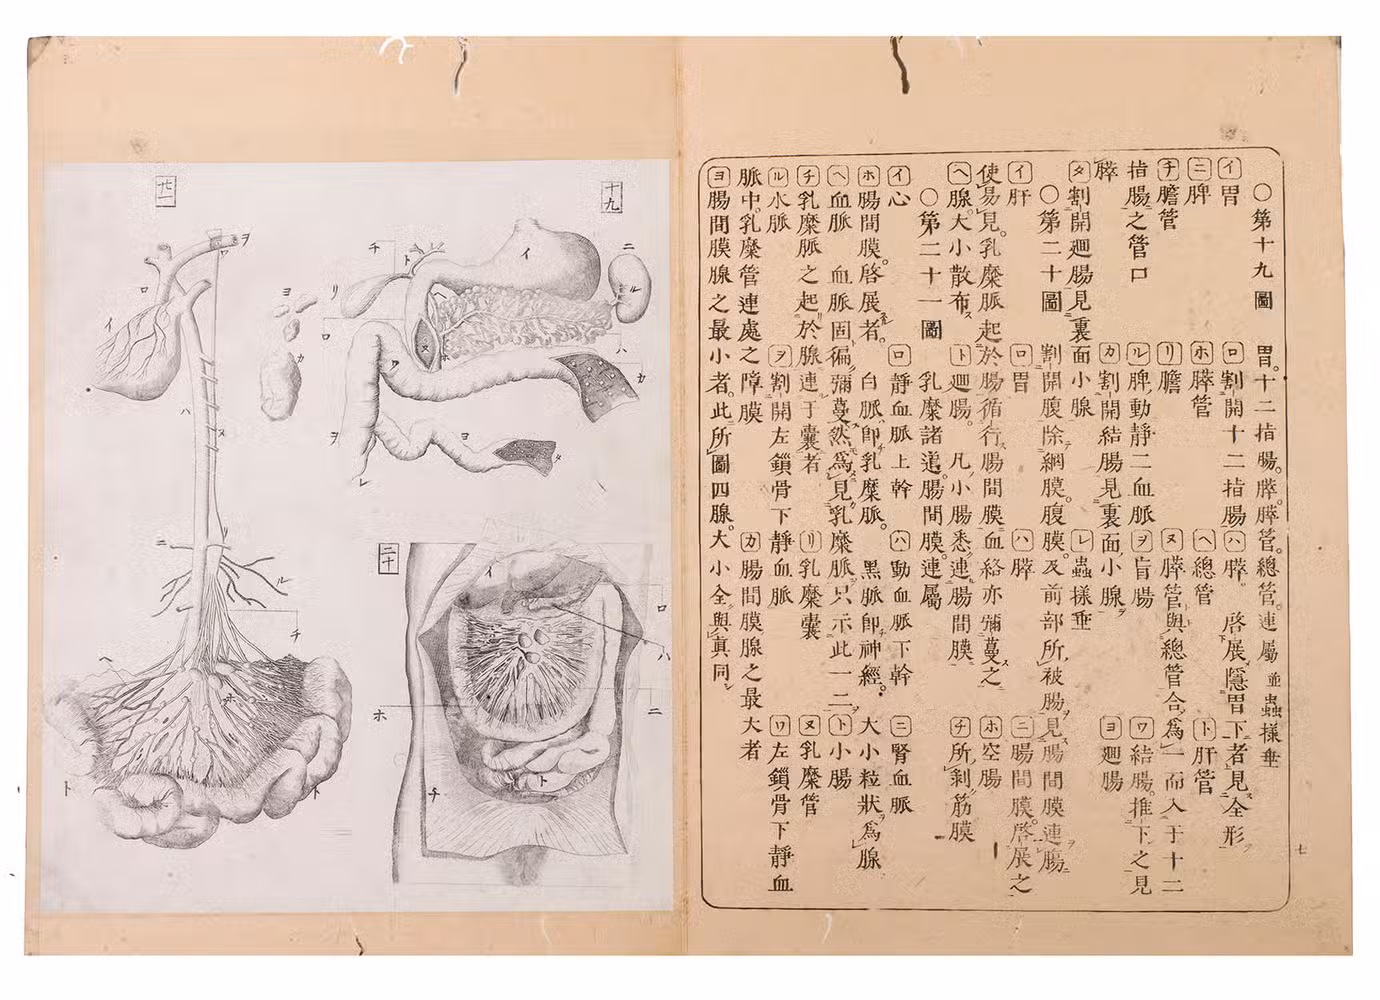 〇第十九圖 胃。十二指腸。膵。膵管。總管。連屬 並蟲様垂
イ 胃 ロ 割開十二指腸 ハ 膵。啓展隱胃下者見全形
ニ 脾 ホ 膵管 ヘ 總管 ト 肝管
チ 膽管 リ 膽 ヌ 膵管與總管合爲一而入于十二
指腸之管口 ル 脾動靜二血脈 ヲ 盲腸 ワ 結腸。推下之見
膵 カ 割開結腸見裏面小腺 ヨ 廻腸
タ 割開廻腸見裏面小腺 レ 蟲様垂
〇第二十圖 割開腹除網膜。腹膜。及前部所被腸見腸間膜連腸
イ 肝 ロ 胃 ハ 膵 ニ 腸間膜。啓展之
使易見。乳糜脈起於腸循行腸間膜血絡亦彌蔓之 ホ 空腸
ヘ 腺。大小散布 ト 廻腸。凡小腸悉連腸間膜 チ 所剥筋膜
〇第二十一圖 乳糜諸道。腸間膜。連屬
イ 心 ロ 靜血脈上幹 ハ 動血脈下幹 ニ 腎血脈
ホ 腸間膜。啓展者。白脈即乳糜脈。黑脈即神經。大小粒狀爲腺
ヘ 血脈 血脈固徧彌蔓然爲見乳糜脈只示此一二 ト 小腸
チ 乳糜脈之起於腺連于嚢者 リ 乳糜嚢 ヌ 乳糜管
ル 水脈 ヲ 割開左鎖骨下靜血脈 ワ 左鎖骨下靜血
脈中。乳糜管連處之障膜 カ 腸間膜腺之最大者
ヨ 腸間膜腺之最小者。此所圖四腺。大小全與真同
七
十九
ニ
イ
ト
チ
リ
ヨ
ロ
カ
ヘ
ル
ハ
ヌ
ホ
ワ
カ
ヲ
ヨ
タ
レ
二十
イ
ロ
ハ
ニ
ホ
ト
チ
廿一
ヲ
ワ
ロ
イ
ハ
ヌ
ニ
リ
ル
チ
ヘ
ホ
ト
ト